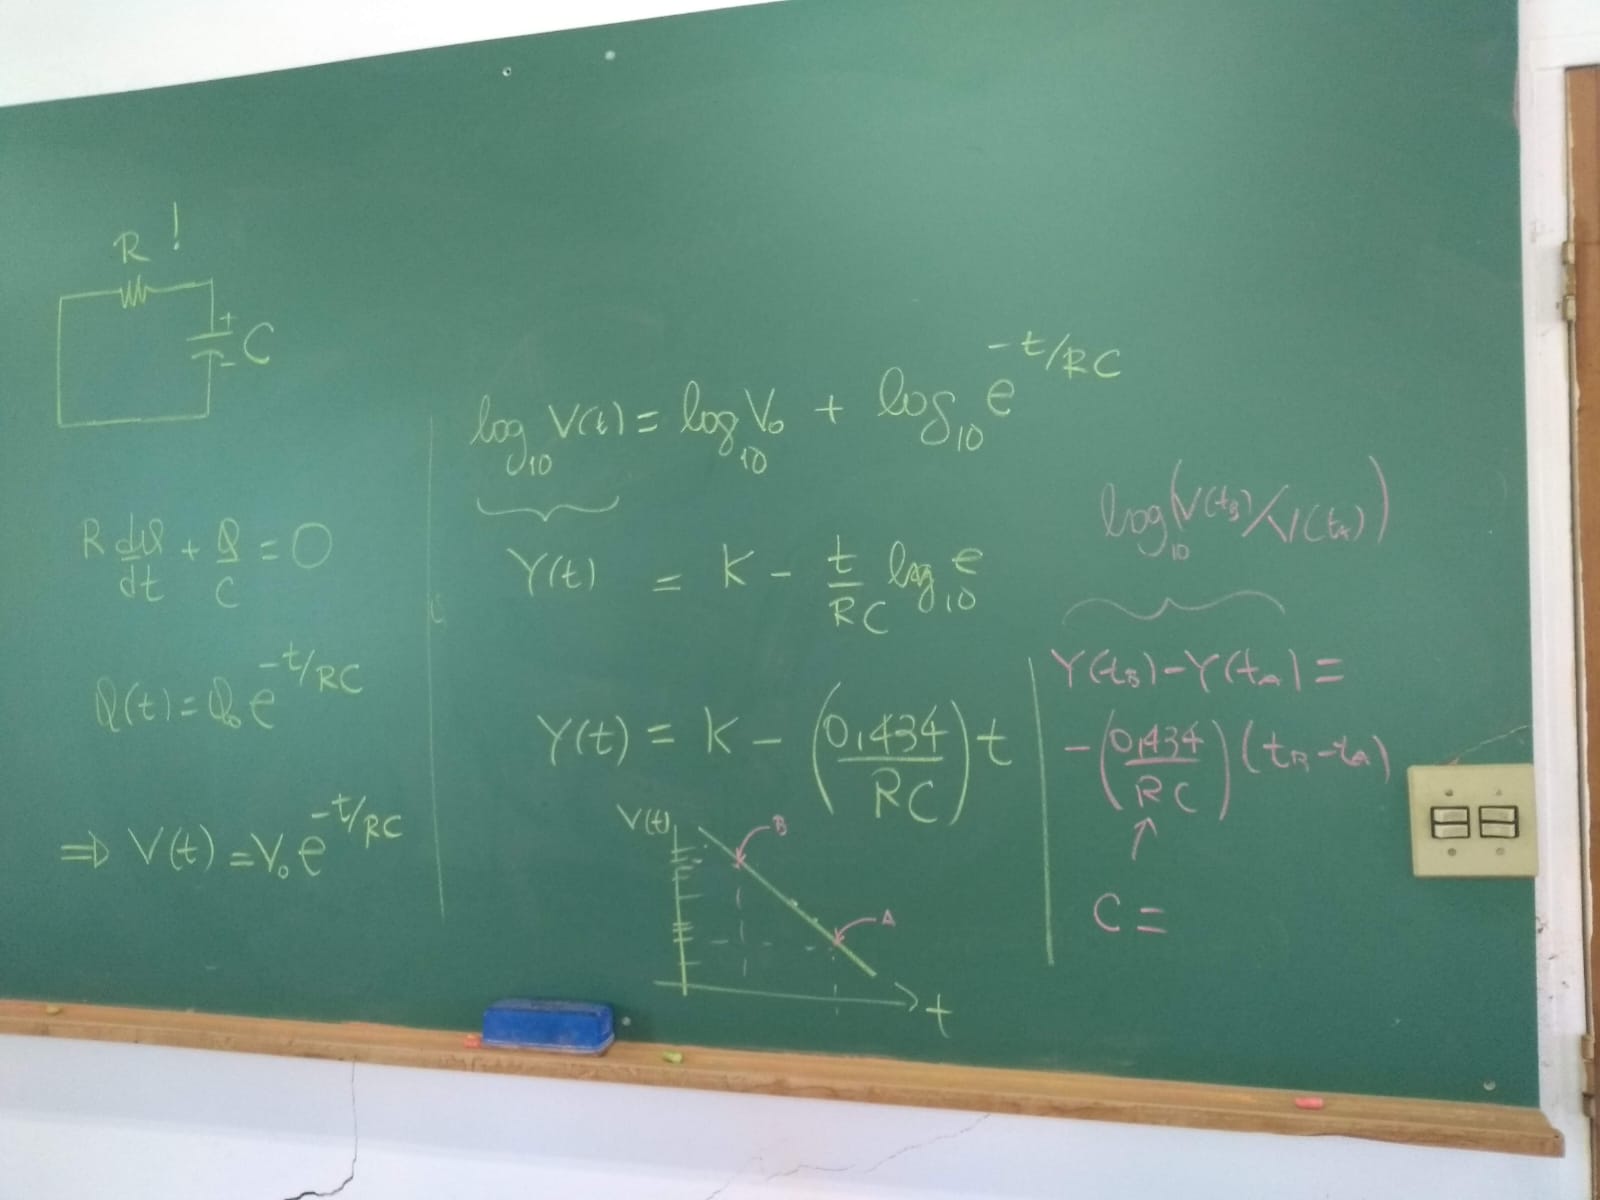 R !
+
C
-
R dQ/dt + Q/C = 0
Q(t) = Q₀ e^(-t/RC)
⇒ V(t) = V₀ e^(-t/RC)
log₁₀ V(t) = log₁₀ V₀ + log₁₀ e^(-t/RC)
Y(t) = K - t/RC log₁₀ e
Y(t) = K - (0,434/RC) t
V(t)
B
A
t
log₁₀ (V(t_B)/V(t_A))
Y(t_B) - Y(t_A) =
- (0,434/RC) (t_B - t_A)
↑
C =